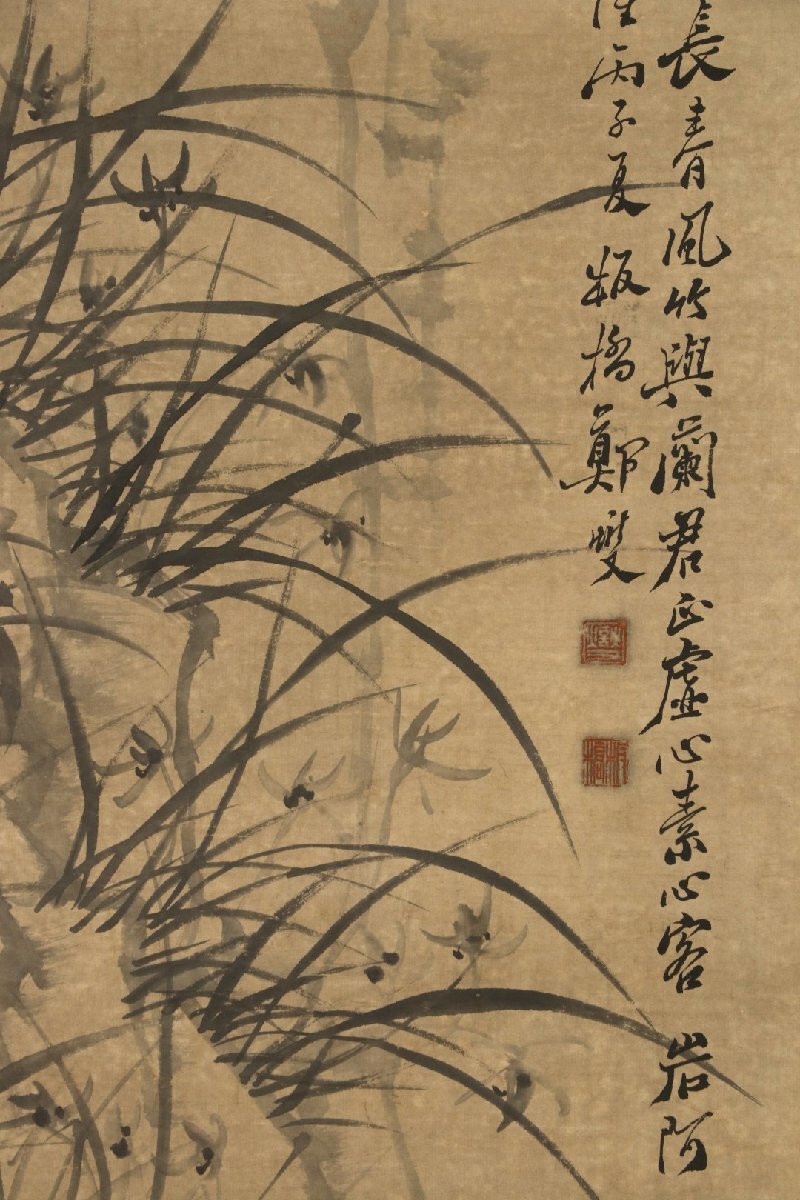 長青風竹與蘭君正虛心素心客岩阿
佳丙子夏板橋鄭燮